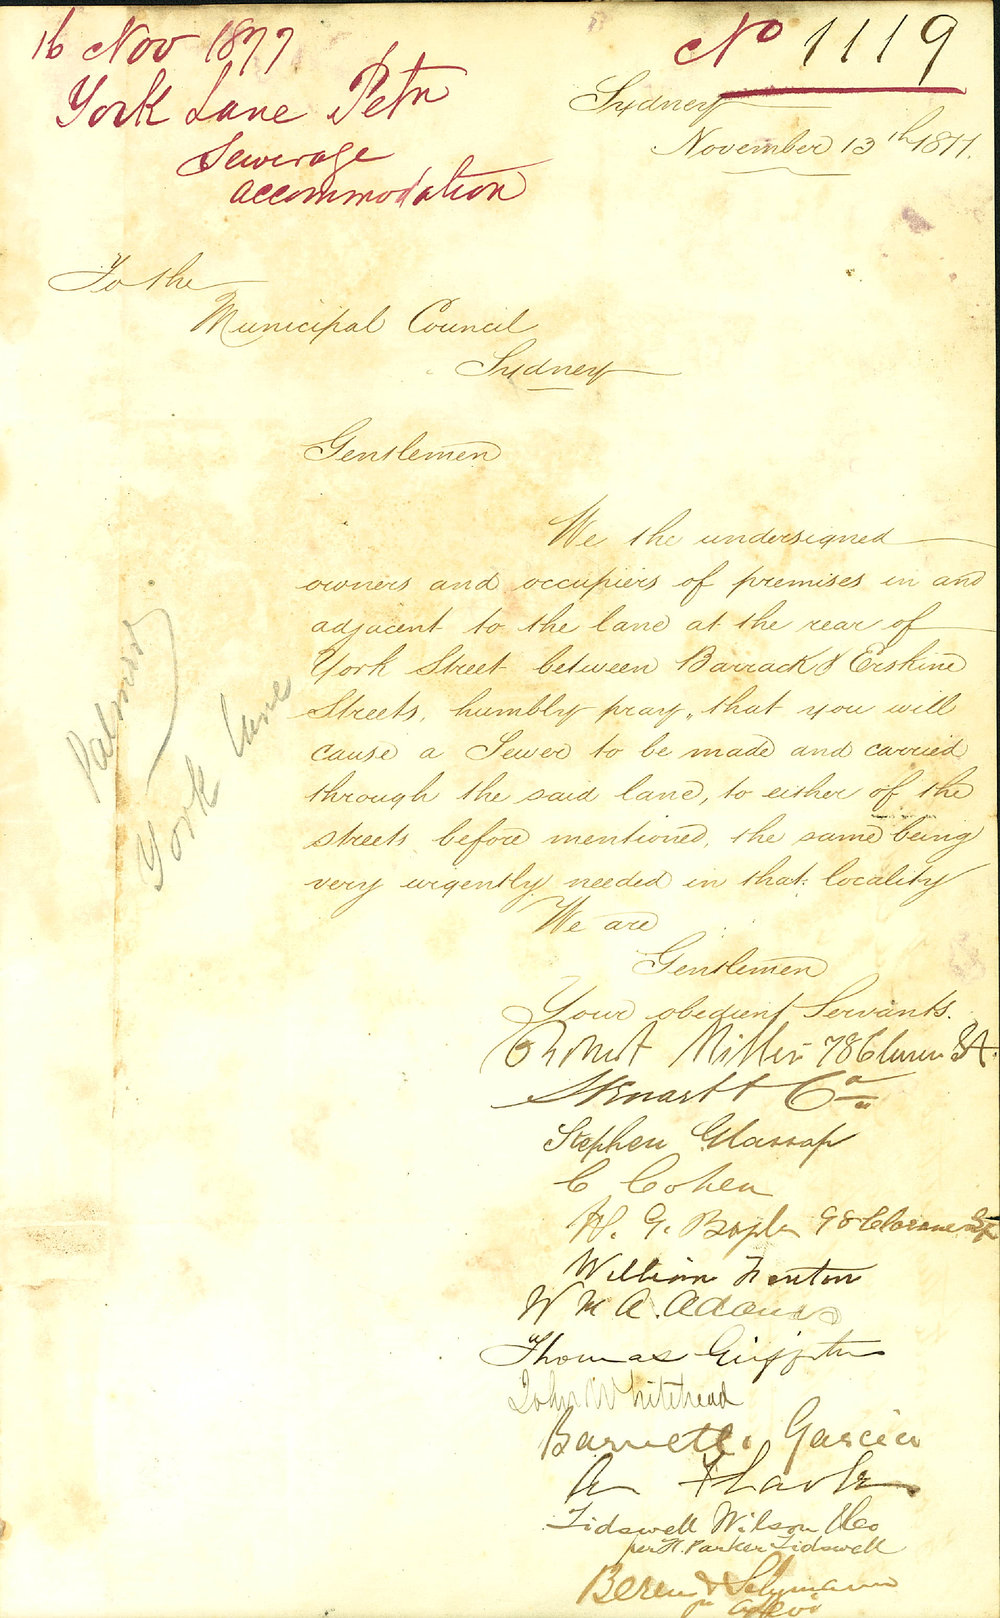 16 Nov 1877
York Lane Petn
Sewerage
accommodation
No 1119
Sydney
November 13th 1877.
To the
Municipal Council
Sydney
Gentlemen
We the undersigned
owners and occupiers of premises in and
adjacent to the lane at the rear of
York Street between Barrack & Erskine
Streets, humbly pray, that you will
cause a Sewer to be made and carried
through the said lane, to either of the
streets before mentioned, the same being
very urgently needed in that locality
We are
Gentlemen
Your obedient Servants.
Robert Miller 78 Clarence St.
& Co
Stephen Glassop
C Cohen
H. G. 98 Clarence St
William Fenton
Wm A. Adams
Thomas Griffiths
John Whitehead
Barnett Garcia
A
Tidswell Wilson & Co
per H. Parker Tidswell
Beren &
Palmer
York Lane